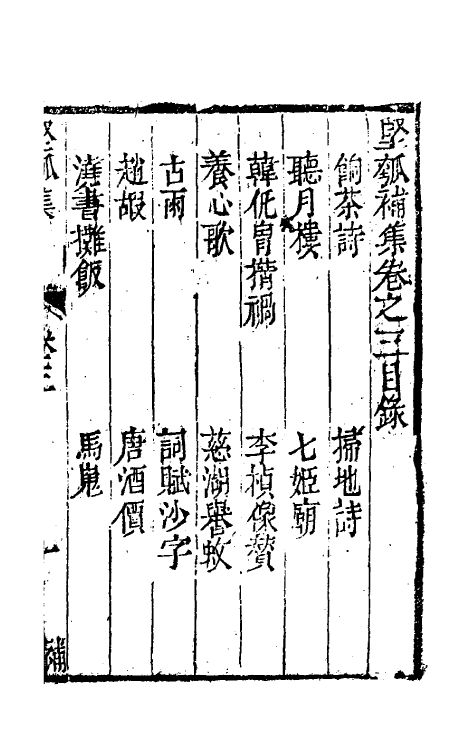 堅瓠補集卷之三目錄
餉茶詩　掃地詩
聽月樓　七姬廟
韓侂胄揹禍　李楨像贊
養心歌　慈湖譽蚊
古雨　詞賦沙字
趙嘏　唐酒價
澆書攤飯　馬鬼
堅瓠集　卷三　一　補